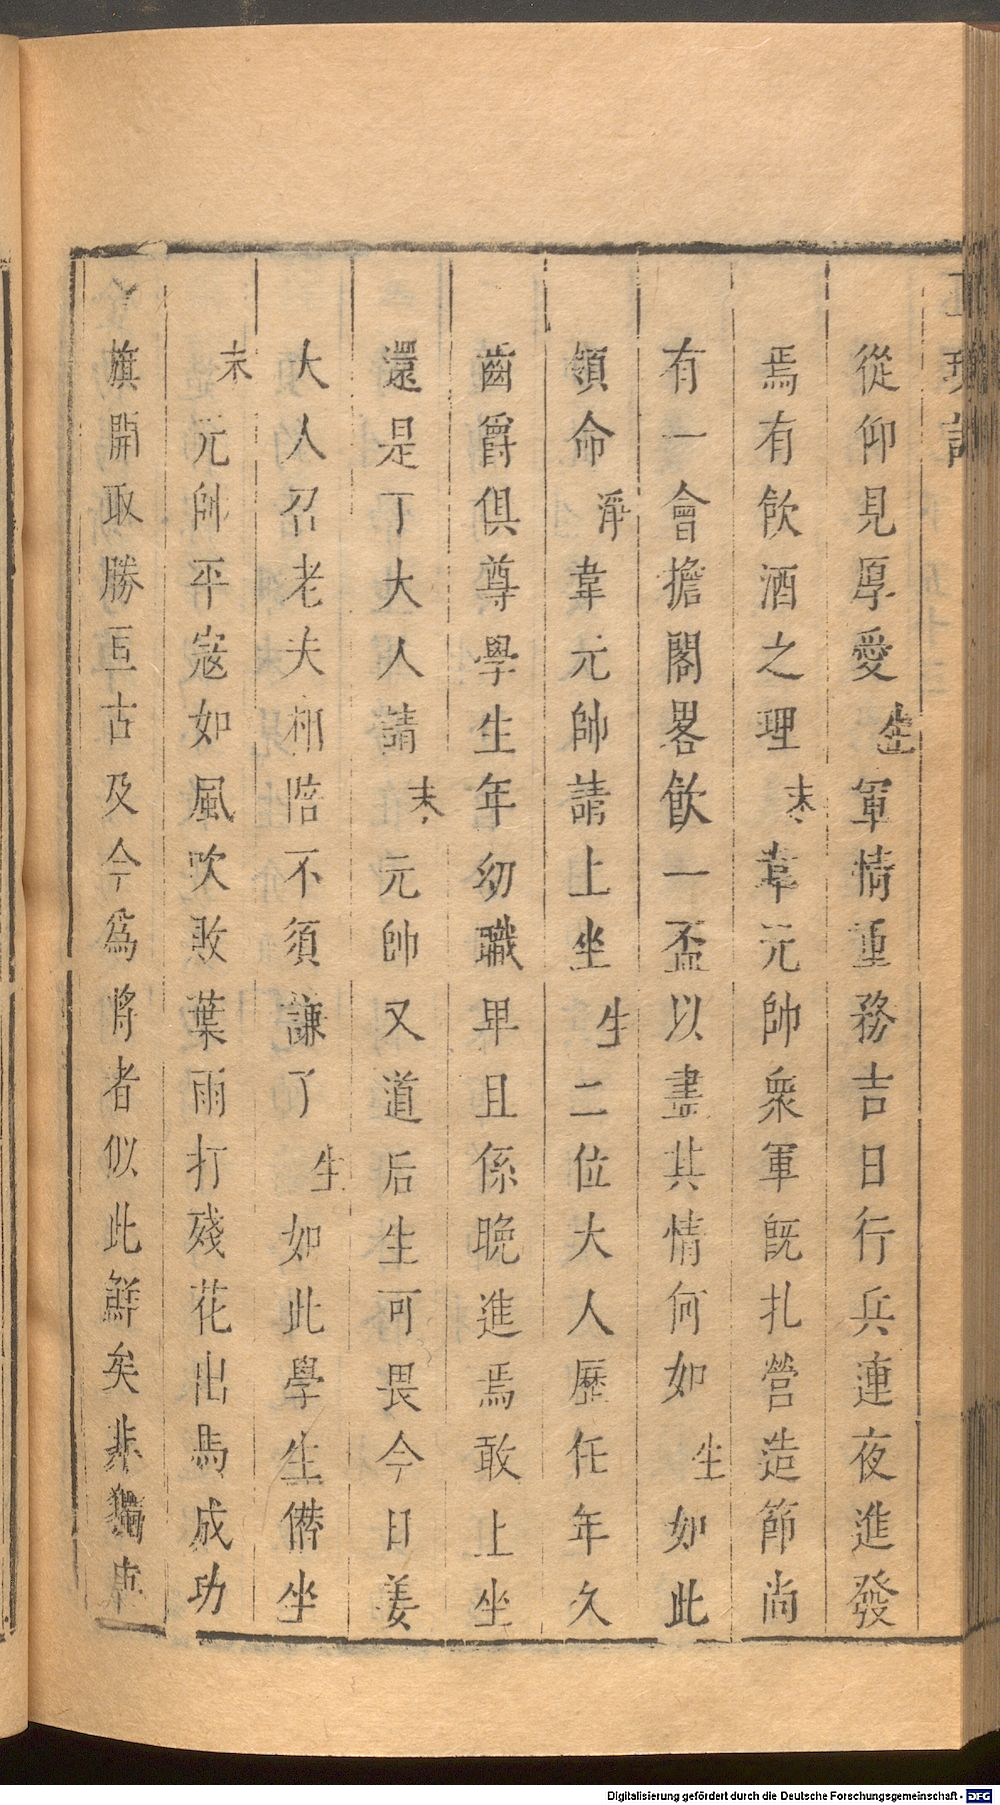 從仰見厚愛生軍情重務吉日行兵連夜進發
焉有飲酒之理末韋元帥衆軍旣扎營造節尚
有一會擔閣畧飲一盃以盡其情何如生如此
領命淨韋元帥請上坐生二位大人歷任年久
齒爵俱尊學生年幼職卑且係晚進焉敢上坐
還是丁大人請末元帥又道后生可畏今日姜
大人召老夫相陪不須謙了生如此學生僣坐
末元帥平寇如風吹敗葉雨打殘花出馬成功
旗開取勝亙古及今爲將者似此鮮矣非獨
Digitalisierung gefördert durch die Deutsche Forschungsgemeinschaft - DFG